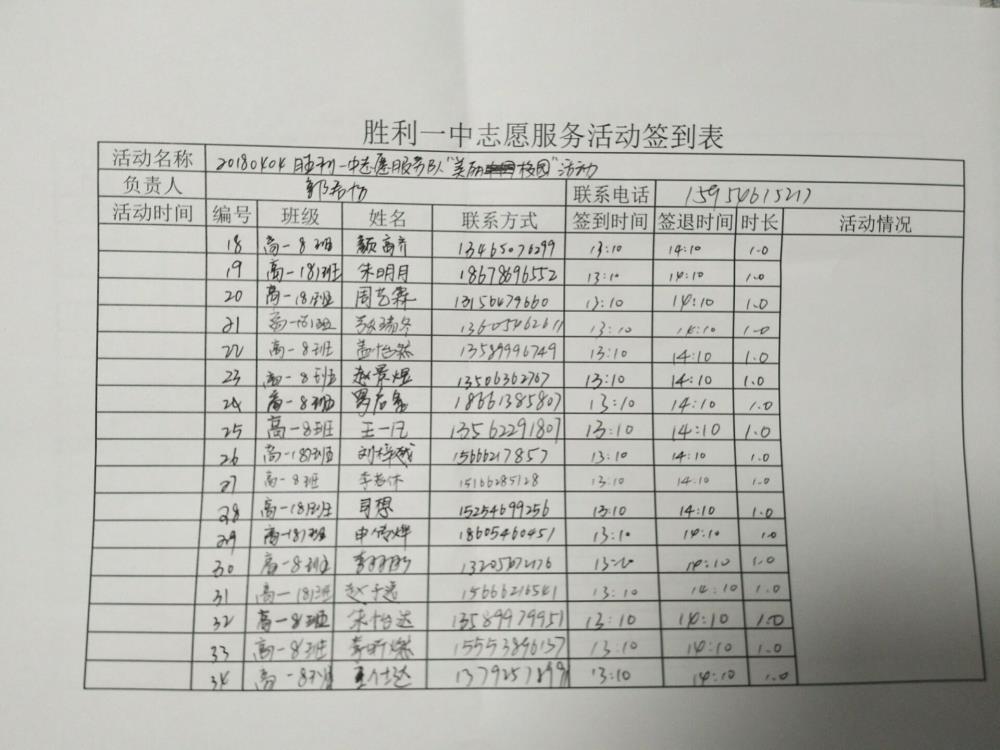 胜利一中志愿服务活动签到表
活动名称 20180404胜利一中志愿服务队"美丽校园"活动
负责人 联系电话 15954615217
活动时间 编号 班级 姓名 联系方式 签到时间 签退时间 时长 活动情况
18 高一8班 13465076299 13:10 14:10 1.0
19 高一18班 朱明月 18678696552 13:10 14:10 1.0
20 高一18班 周艺霖 13156479660 13:10 14:10 1.0
21 高一18班 13605462611 13:10 14:10 1.0
22 高一8班 孟怡然 13589996749 13:10 14:10 1.0
23 高一8班 赵景煜 13506362767 13:10 14:10 1.0
24 高一8班 18661385807 13:10 14:10 1.0
25 高一8班 王一凡 13562291807 13:10 14:10 1.0
26 高一18班 刘梓越 15666217857 13:10 14:10 1.0
27 高一8班 15166285128 13:10 14:10 1.0
28 高一18班 司想 15254699256 13:10 14:10 1.0
29 高一18班 18605460451 13:10 14:10 1.0
30 高一8班 13:10 14:10 1.0
31 高一18班 赵子逸 15666216541 13:10 14:10 1.0
32 高一8班 宋怡达 13589979951 13:10 14:10 1.0
33 高一8班 15553896137 13:10 14:10 1.0
34 高一8班 13792578991 13:10 14:10 1.0